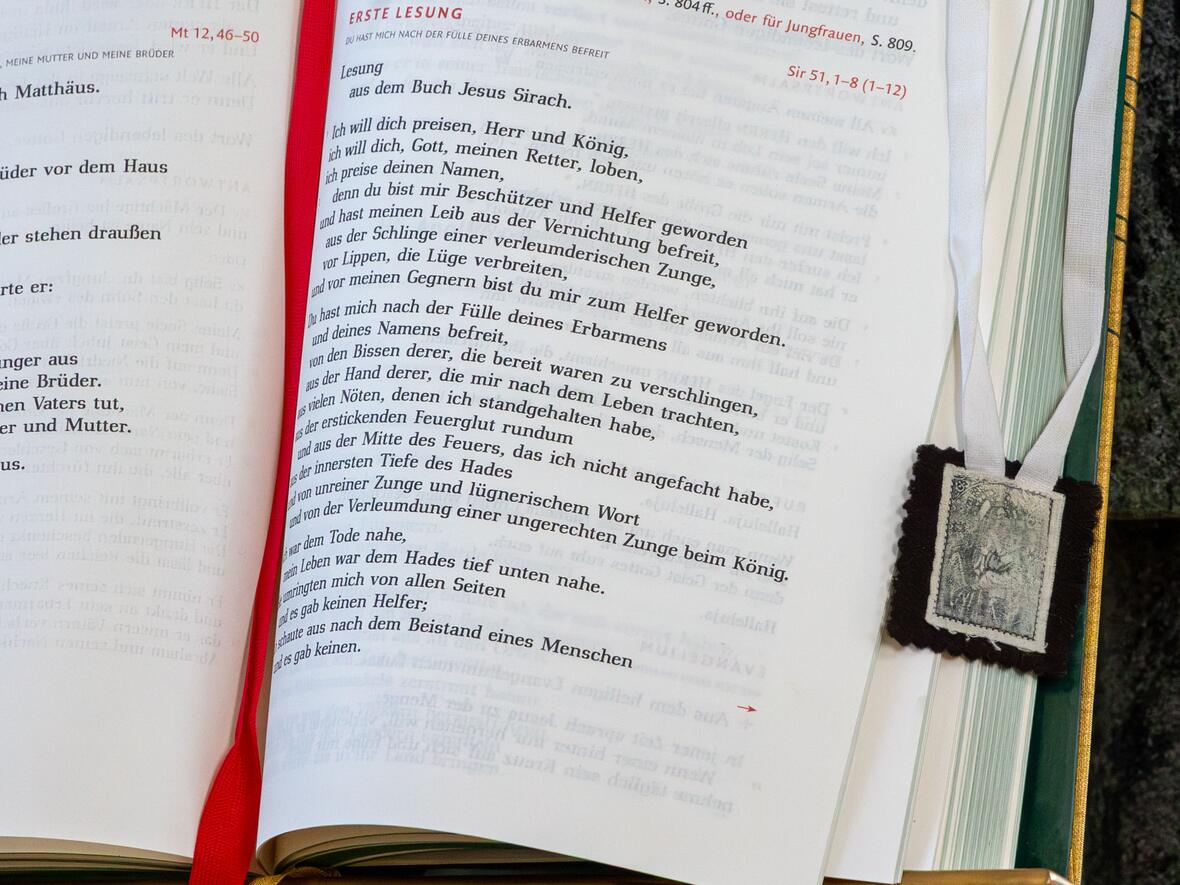 Mt 12, 46–50
, MEINE MUTTER UND MEINE BRÜDER
h Matthäus.
üder vor dem Haus
stehen draußen
rte er:
nger aus
eine Brüder.
en Vaters tut,
er und Mutter.
us.
S. 804 ff., oder für Jungfrauen, S. 809.
ERSTE LESUNG
DU HAST MICH NACH DER FÜLLE DEINES ERBARMENS BEFREIT
Sir 51, 1–8 (1–12)
Lesung
aus dem Buch Jesus Sirach.
Ich will dich preisen, Herr und König,
ich will dich, Gott, meinen Retter, loben,
ich preise deinen Namen,
denn du bist mir Beschützer und Helfer geworden
und hast meinen Leib aus der Vernichtung befreit,
aus der Schlinge einer verleumderischen Zunge,
vor Lippen, die Lüge verbreiten,
und vor meinen Gegnern bist du mir zum Helfer geworden.
Du hast mich nach der Fülle deines Erbarmens
und deines Namens befreit,
von den Bissen derer, die bereit waren zu verschlingen,
aus der Hand derer, die mir nach dem Leben trachten,
us vielen Nöten, denen ich standgehalten habe,
us der erstickenden Feuerglut rundum
und aus der Mitte des Feuers, das ich nicht angefacht habe,
us der innersten Tiefe des Hades
und von unreiner Zunge und lügnerischem Wort
und von der Verleumdung einer ungerechten Zunge beim König.
war dem Tode nahe,
mein Leben war dem Hades tief unten nahe.
umringten mich von allen Seiten
und es gab keinen Helfer;
schaute aus nach dem Beistand eines Menschen
nd es gab keinen.
→